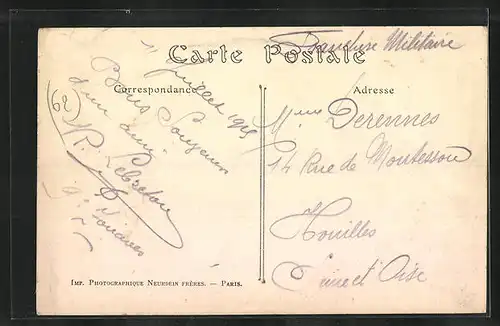 Carte Postale
Franchise Militaire
Correspondance
Adresse
11 Juillet 1915
Bons Souvenirs
d'un ami
P. Lebreton
62
Mme Derennes
14 Rue de Montesson
Houilles
Seine et Oise
Imp. Photographique Neurdein Frères. — Paris.